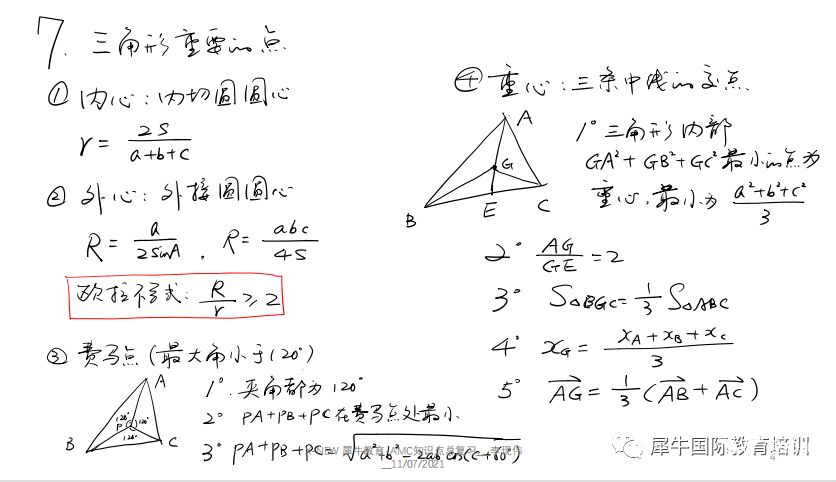 7. 三角形重要的点
① 内心:内切圆圆心
r = 2S / (a+b+c)
② 外心:外接圆圆心
R = a / 2sinA , R = abc / 4S
欧拉不等式: R/r ≥ 2
③ 费马点 (最大角小于120°)
A
B
C
P
120°
120°
120°
1° 夹角都为120°
2° PA+PB+PC在费马点处最小
3° PA+PB+PC = √(a²+b²-2ab cos(C+60°))
④ 重心:三条中线的交点
A
B
C
E
G
1° 三角形内部
GA²+GB²+GC²最小的点为
重心,最小为 (a²+b²+c²) / 3
2° AG/GE = 2
3° S△BGC = 1/3 S△ABC
4° xG = (xA+xB+xC) / 3
5° AG = 1/3 (AB+AC)
NEW 犀牛教育 AMC知识点总复习
11/07/2021
4
犀牛国际教育培训